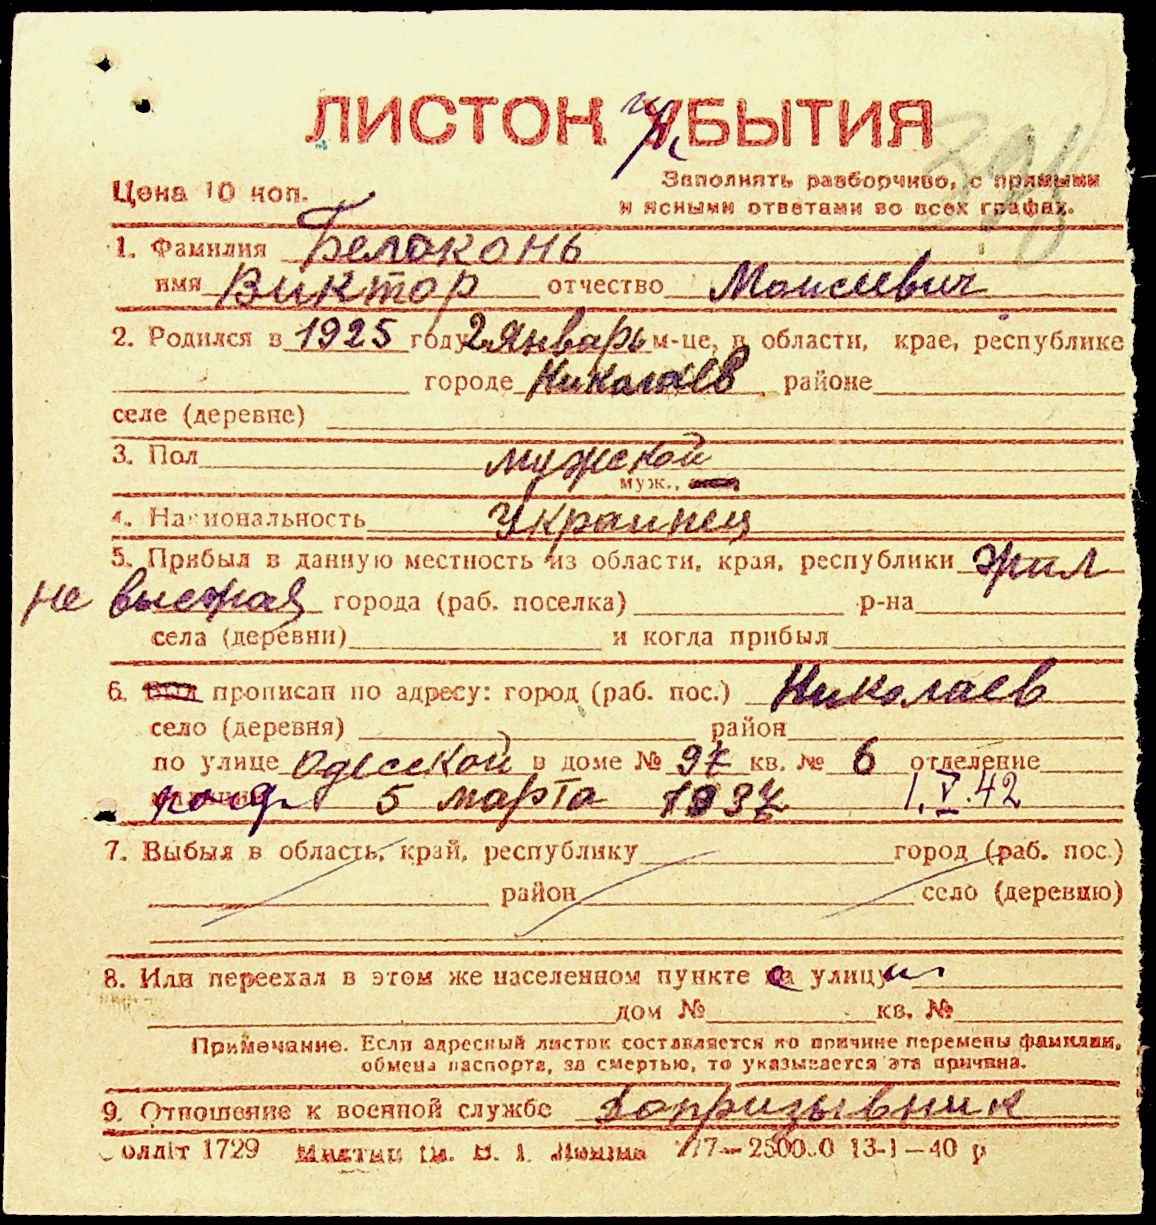 ЛИСТОК УБЫТИЯ
Цена 10 коп.
Заполнять разборчиво, с прямыми
и ясными ответами во всех графах.
1. Фамилия Белоконь
имя Виктор отчество Моисеевич
2. Родился в 1925 году 2 январь м-це, в области, крае, республике
городе Николаев районе
селе (деревне)
3. Пол мужской
муж.,
4. Национальность Украинец
5. Прибыл в данную местность из области, края, республики жил
не выезжая города (раб. поселка) р-на
села (деревни) и когда прибыл
6. Был прописан по адресу: город (раб. пос.) Николаев
село (деревня) район
по улице Одесской в доме № 97 кв. № 6 отделение
5 марта 1937 1.V.42
7. Выбыл в область, край, республику город (раб. пос.)
район село (деревню)
8. Или переехал в этом же населенном пункте с улицы
дом № кв. №
Примечание. Если адресный листок составляется по причине перемены фамилии,
обмена паспорта, за смертью, то указывается эта причина.
9. Отношение к военной службе Допризывник
олліт 1729 13-I—40 р